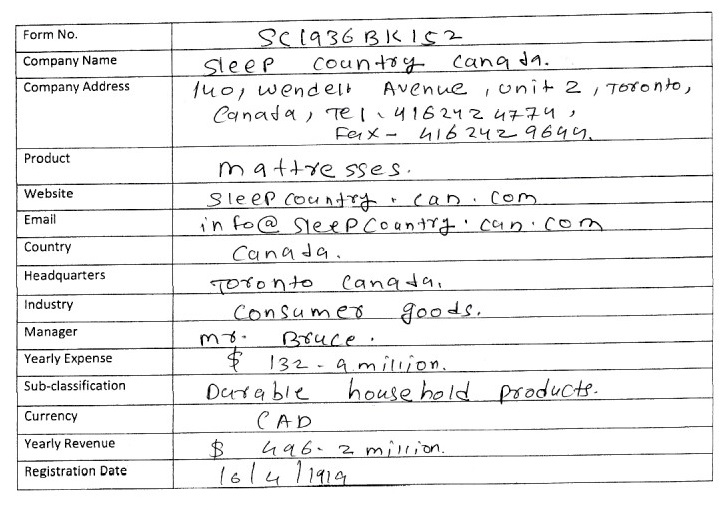 Form No. SC1936BK152
Company Name Sleep country Canada.
Company Address 140, Wendell Avenue, unit 2, Toronto,
Canada, Tel. 416 242 4774,
Fax - 416 242 9644.
Product mattresses.
Website sleepcountry.can.com
Email info@sleepcountry.can.com
Country Canada.
Headquarters Toronto Canada.
Industry Consumer goods.
Manager mr. Bruce.
Yearly Expense $ 132.9 million.
Sub-classification Durable household products.
Currency CAD
Yearly Revenue $ 496.2 million.
Registration Date 16/4/1919